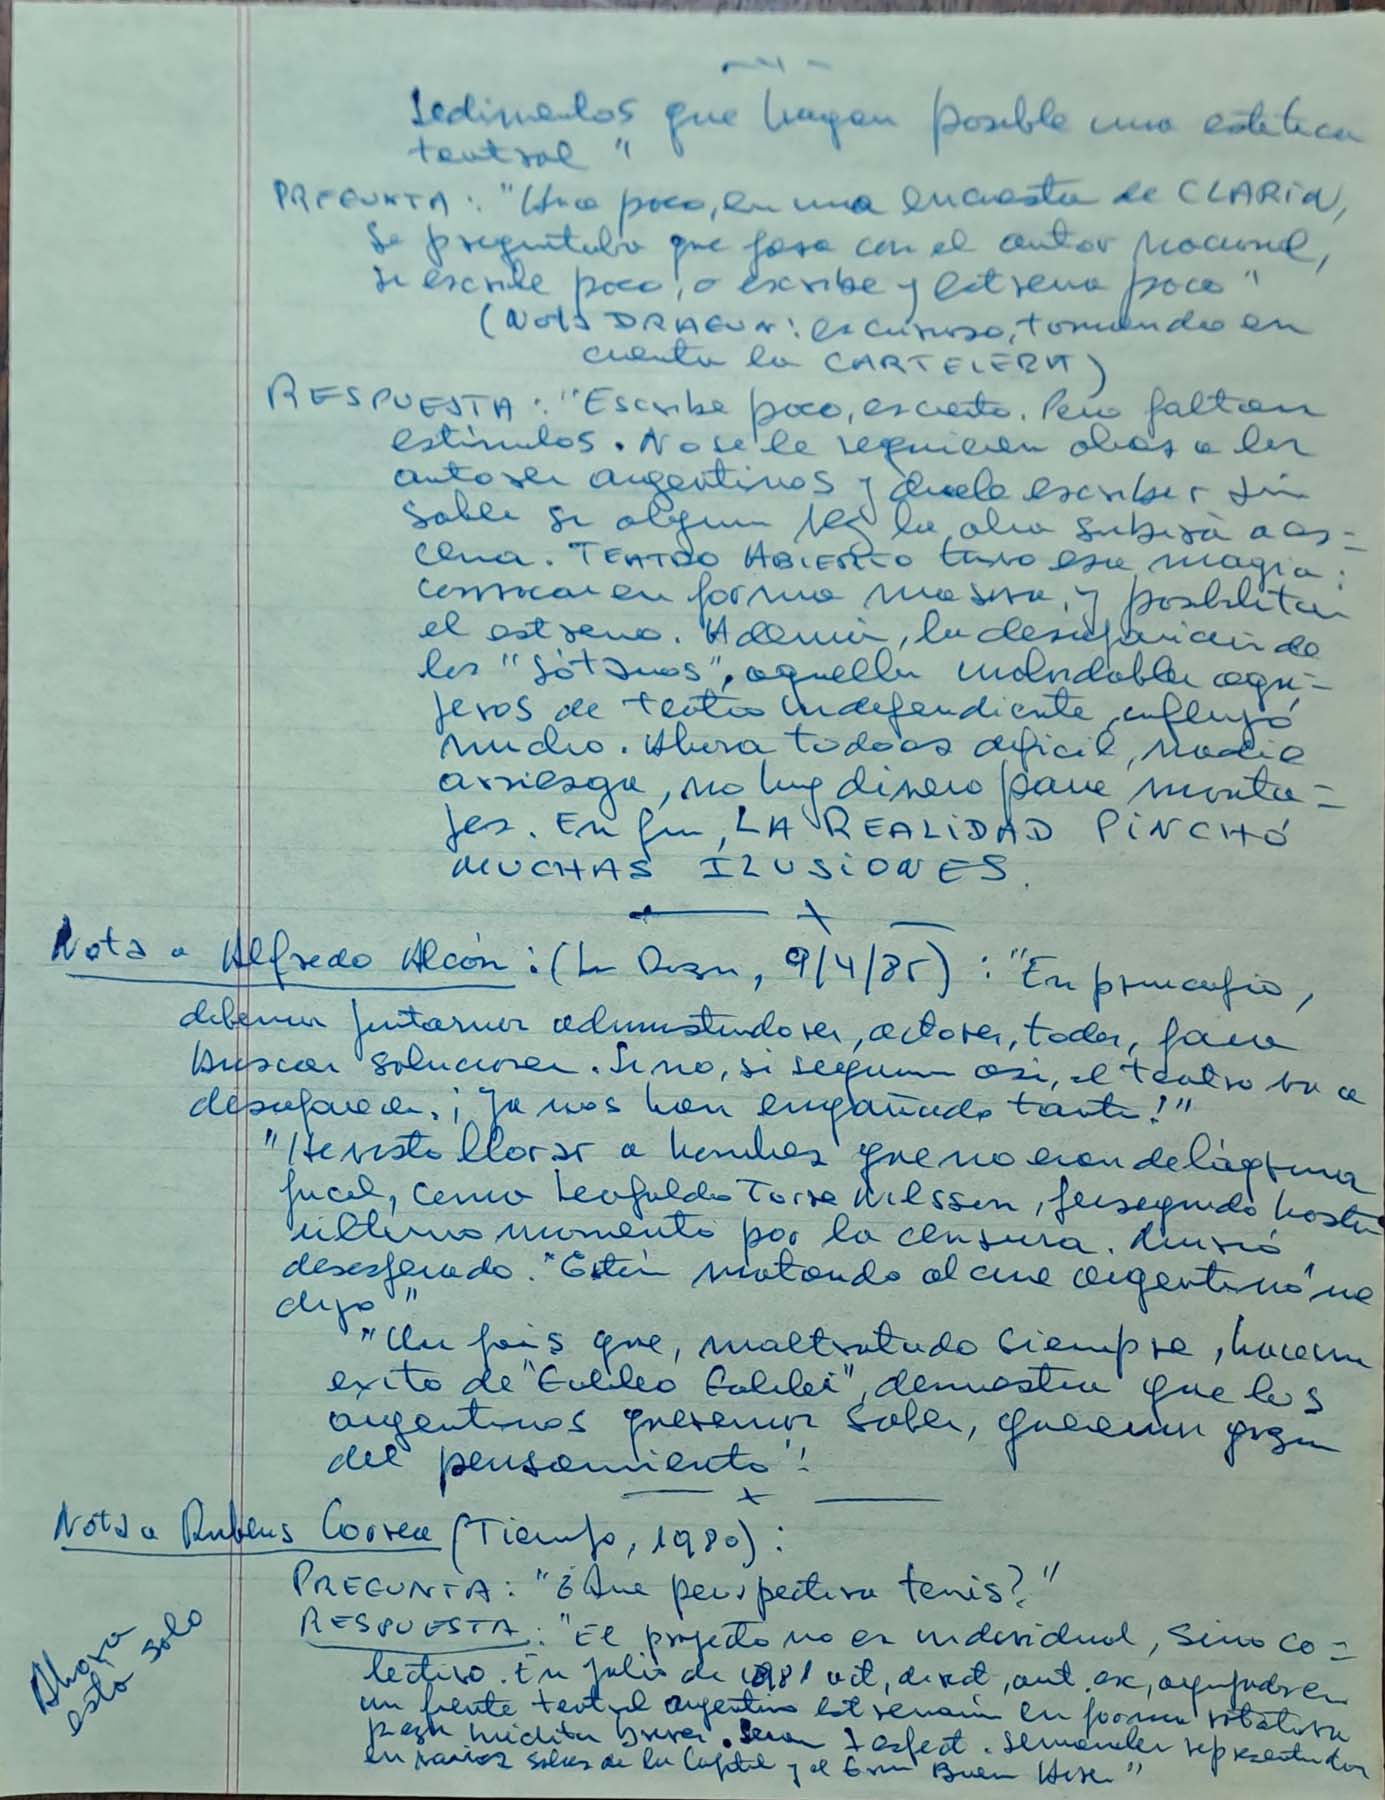 -4-
sedimentos que hagan posible una estética
teatral"
PREGUNTA: "Hace poco, en una encuesta de CLARIN,
se preguntaba que pasa con el autor nacional,
si escribe poco, o escribe y estrena poco"
(Nota DRAGUN: es curioso, tomando en
cuenta la CARTELERA)
RESPUESTA: "Escribe poco, es cierto. Pero faltan
estímulos. No se le requieren obras a los
autores argentinos y duele escribir sin
saber si alguna vez la obra subirá a es=
cena. TEATRO ABIERTO tuvo esa magia:
convocar en forma masiva, y posibilitar
el estreno. Además, la desaparición de
los "sótanos", aquellos inolvidables agu=
jeros de teatro independiente, influyó
mucho. Ahora todo es dificil, nadie
arriesga, no hay dinero para monta=
jes. En fin, LA REALIDAD PINCHÓ
MUCHAS ILUSIONES.
Nota a Alfredo Alcón: (La Razón, 9/4/85): "En principio,
debemos juntarnos administradores, actores, todos, para
buscar soluciones. Sino, si seguimos asi, el teatro va a
desaparecer. ¡Ya nos han engañado tanto!"
"He visto llorar a hombres que no eran de lágrima
facil, como Leopoldo Torre Nilsson, perseguido hasta
último momento por la censura. Murió
desesperado. "Están matando al cine argentino" me
dijo"
"Un país que, maltratado siempre, hace un
exito de "Galileo Galilei", demuestra que los
argentinos queremos saber, queremos gozar
del pensamiento"!
Nota a Rubens Correa (Tiempo, 1980):
PREGUNTA: "¿Que perspectiva tenés?"
RESPUESTA: "El proyecto no es individual, sino co=
lectivo. En julio de 1981 act, direct, aut. esc, agrupados en
un frente teatral argentino estrenarán en forma rotativa
piezas inéditas breves. Seran 7 espect. semanales representados
en varias salas de la Capital y el Gran Buenos Aires"
Ahora
esto solo